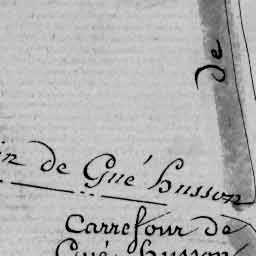 de
in de Gué husson
Carrefour de
Gué husson